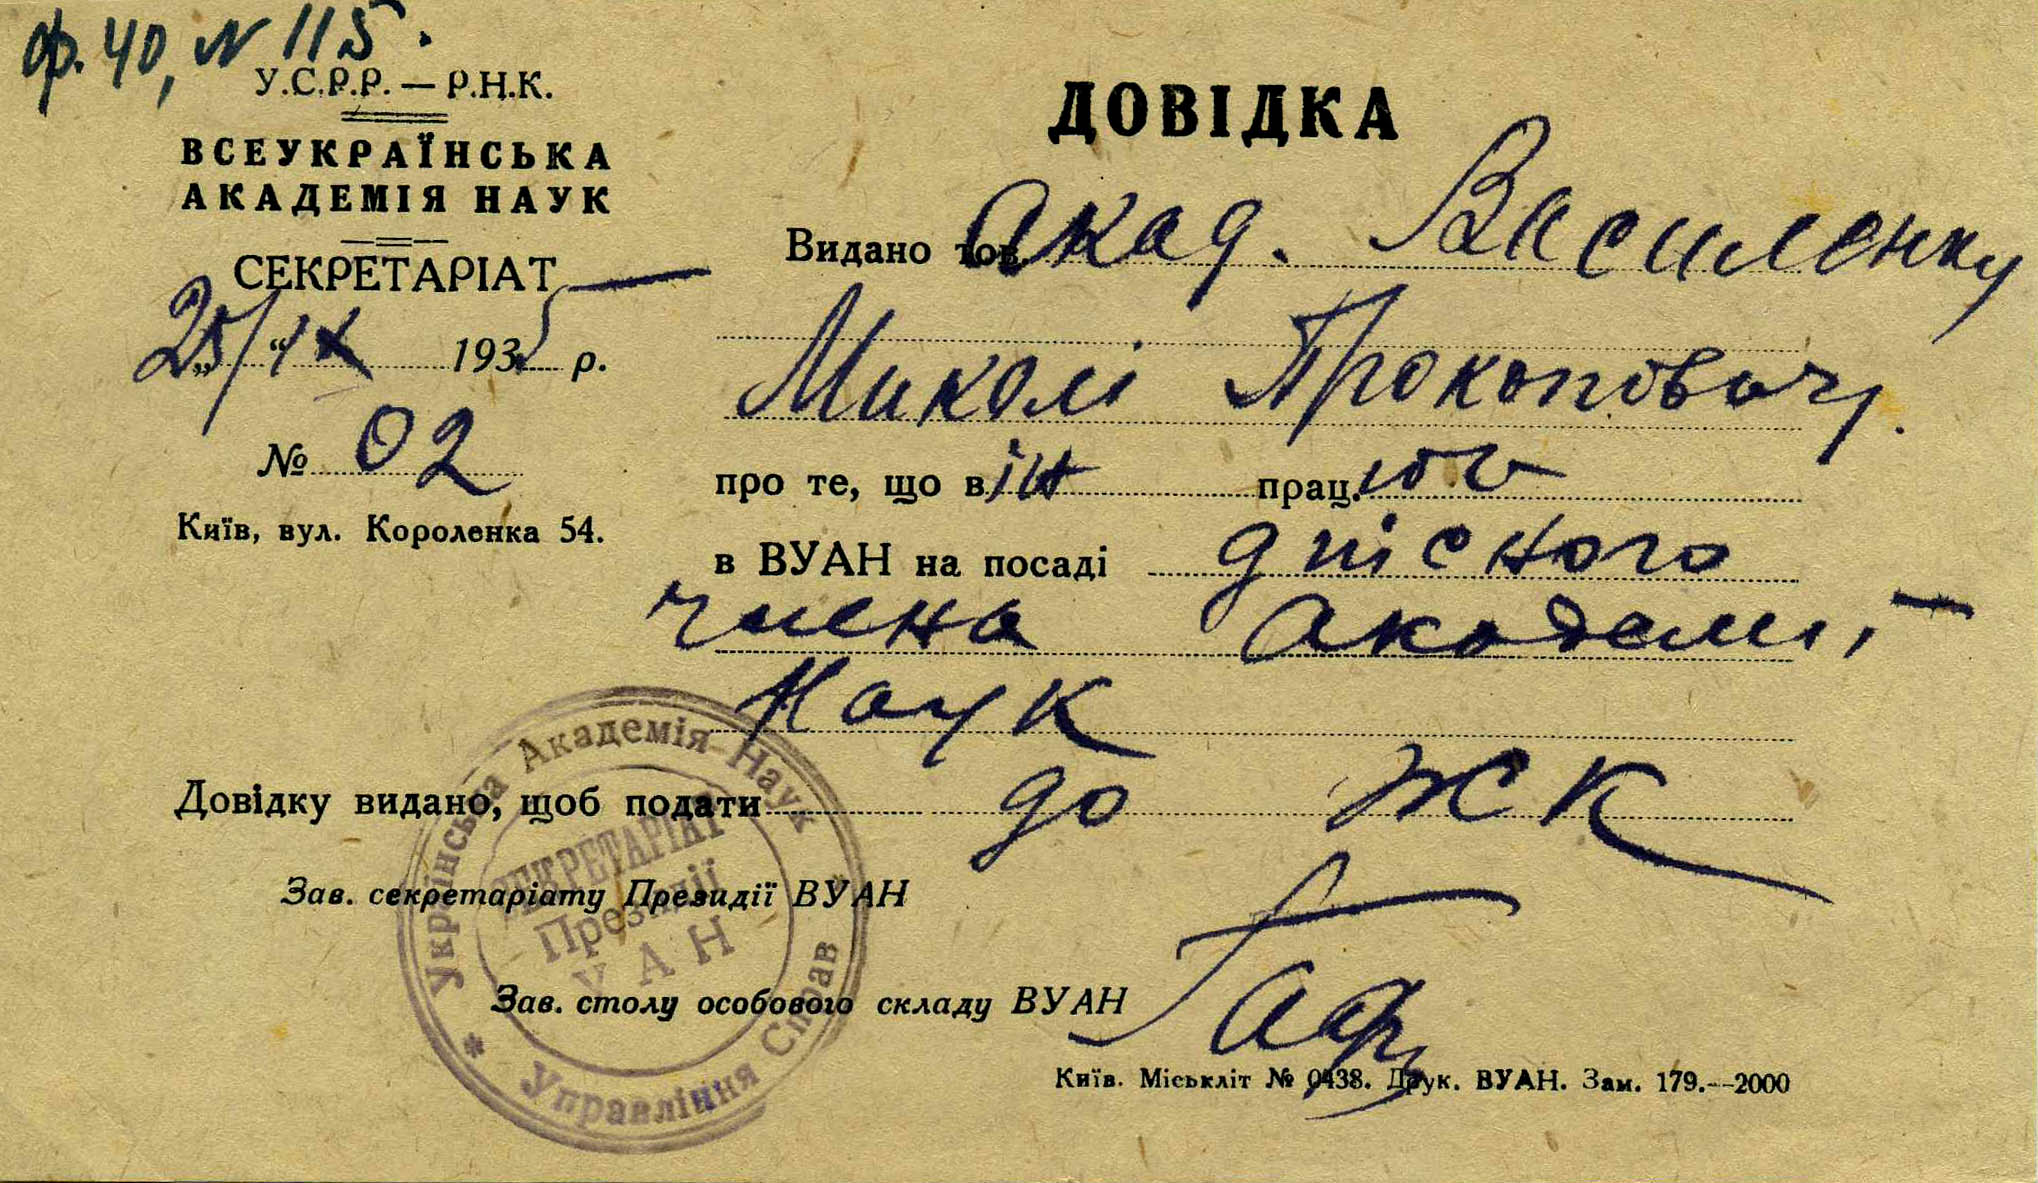 ф. 40, № 115.
У.С.Р.Р. — Р.Н.К.
ВСЕУКРАЇНСЬКА
АКАДЕМІЯ НАУК
СЕКРЕТАРІАТ
„25/“ IX 1935 р.
№ 02
Київ, вул. Короленка 54.
ДОВІДКА
Видано тов. Акад. Василенку
Миколі Прокоповичу.
про те, що він працює
в ВУАН на посаді дпісного
члена Академії
Наук
Довідку видано, щоб подати до ЖК
Зав. секретаріату Президії ВУАН
Зав. столу особового складу ВУАН
Київ. Міськліт № 0438. Друк. ВУАН. Зам. 179.—2000
Українська Академія Наук
* Управління Справ *
СЕКРЕТАРІАТ
Президії
УАН